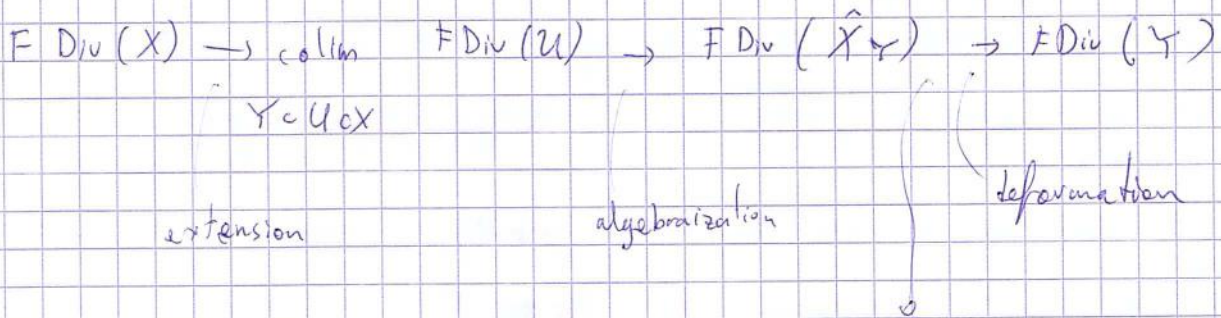 F Div (X) → colim F Div (U) → F Div (X̂_Y) → F Div (Y)
Y ⊂ U ⊂ X
extension algebraization deformation